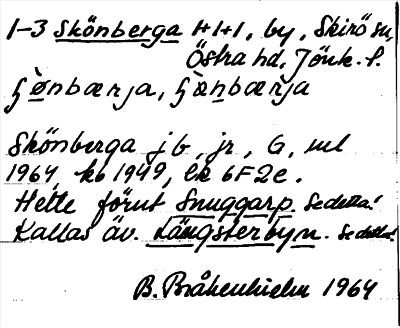 1-3 Skönberga 1+1+1, by, Skirö sn,
Östra hd, Jönk. l.
ʃø̀nbærja, ʃæ̀nbærja
Skönberga jb, jr, G, ml
1964, kb 1949, ek 6F2e.
Hette förut Snuggarp. Se detta!
Kallas äv. Längsterbyn. Se detta!
B. Bråkenhielm 1964